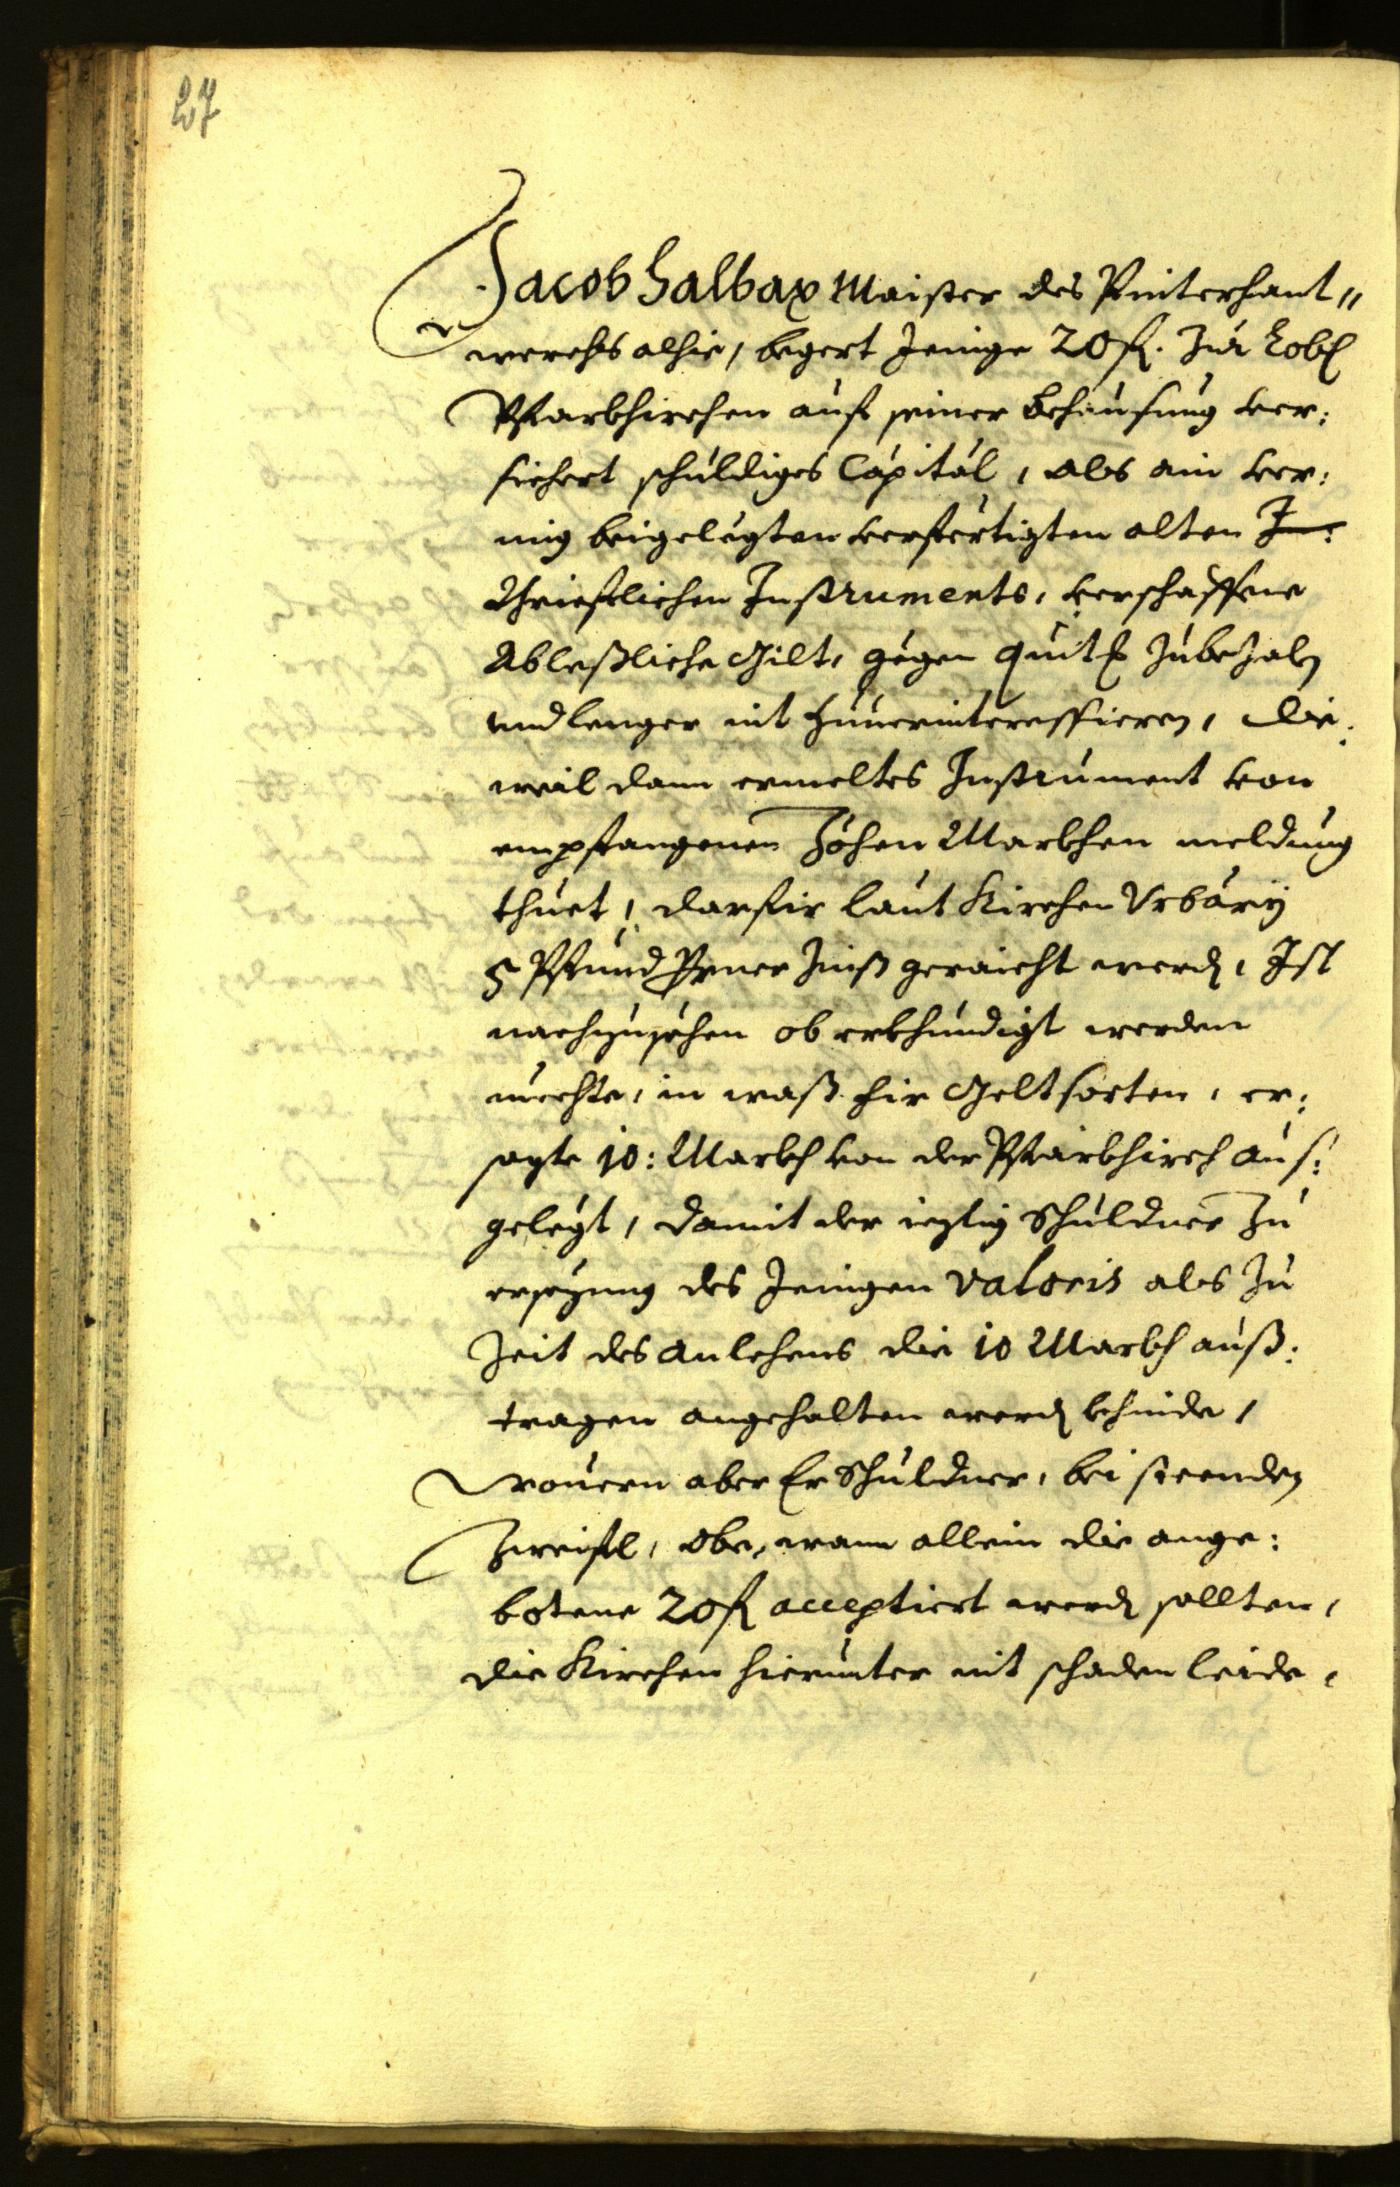 27
Jacob Halbax Maister des Pinterhant„
werchs alhie, begert Jenige 20 fl. Zur Lobl
Pfarkhirchen auf seiner Behausung ver:
sichert schuldiges Capital, als ain ver:
mig beigelegten verfertigten alten
Schrieftlichen Instruments, verschaffene
Ableßliche Gilt, gegen quit Zubezaln
und lenger nit Zuuerinteressieren, die:
weil dann ermeltes Instrument von
empfangenen Zöhen Markhen meldung
thuet, darfir laut Kirchen Vrbary
5 Pfund Perner Zinß geraicht werd, Ist
nachzusehen ob erkhundigt werden
mechte, in waß fir Geltsorten, er:
sagte 10: Markh von der Pfarkhirch aus:
gelegt, damit der ieztig Schuldner Zu
ersezung des Jenigen valoris als Zu
Zeit des anlehens die 10 Markh auß:
tragen angehalten werd khinde,
Wouern aber Er Schuldner, bei steenden
Zweifl, Obe, wann allein die ange:
botene 20 fl acceptiert werd sollten,
die Kirchen hierunter nit schaden leide,